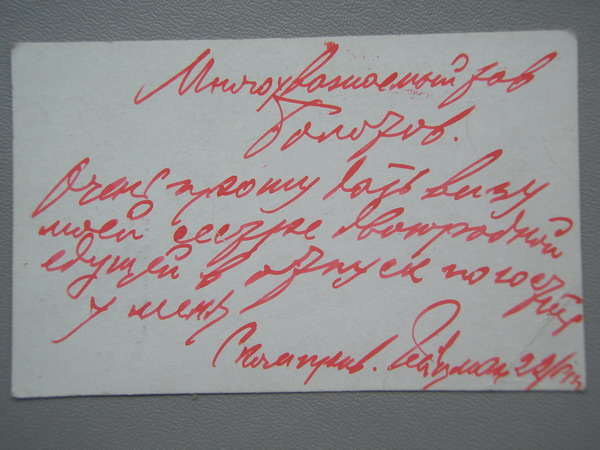 Многоуважаемый тов
Болотов.
Очень прошу дать визу
моей сестре двоюродной
едущей в отпуск погостить
у меня
С комприв. 22/